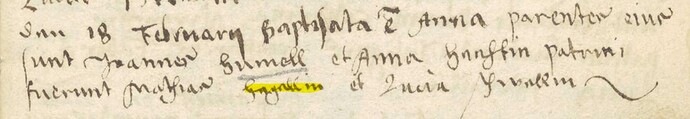 den 18 Februarij Baptisata ē Anna parentes eius
sunt Joannes Humell et Anna patrini
fuerunt Mathias et Lucia